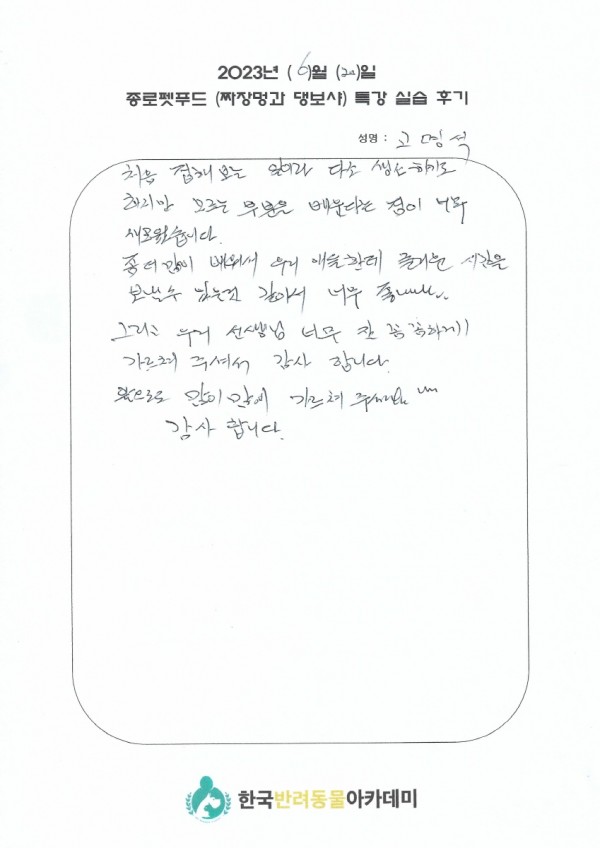 2023년 (6)월 (20)일
종로펫푸드 (짜장멍과 댕보샤) 특강 실습 후기
성명 : 고명석
처음 접해보는 일이라 다소 생소하기도
하지만 모르는 부분을 배운다는 점이 너무
새로웠습니다.
좀 더 많이 배워서 우리 애들한테 즐거운 시간을
보낼수 있는것 같아서 너무
그리고 우리 선생님 너무 잘 꼼꼼하게!!
가르쳐 주셔서 감사 합니다.
앞으로도 많이 많이 가르쳐
감사 합니다.
한국반려동물아카데미